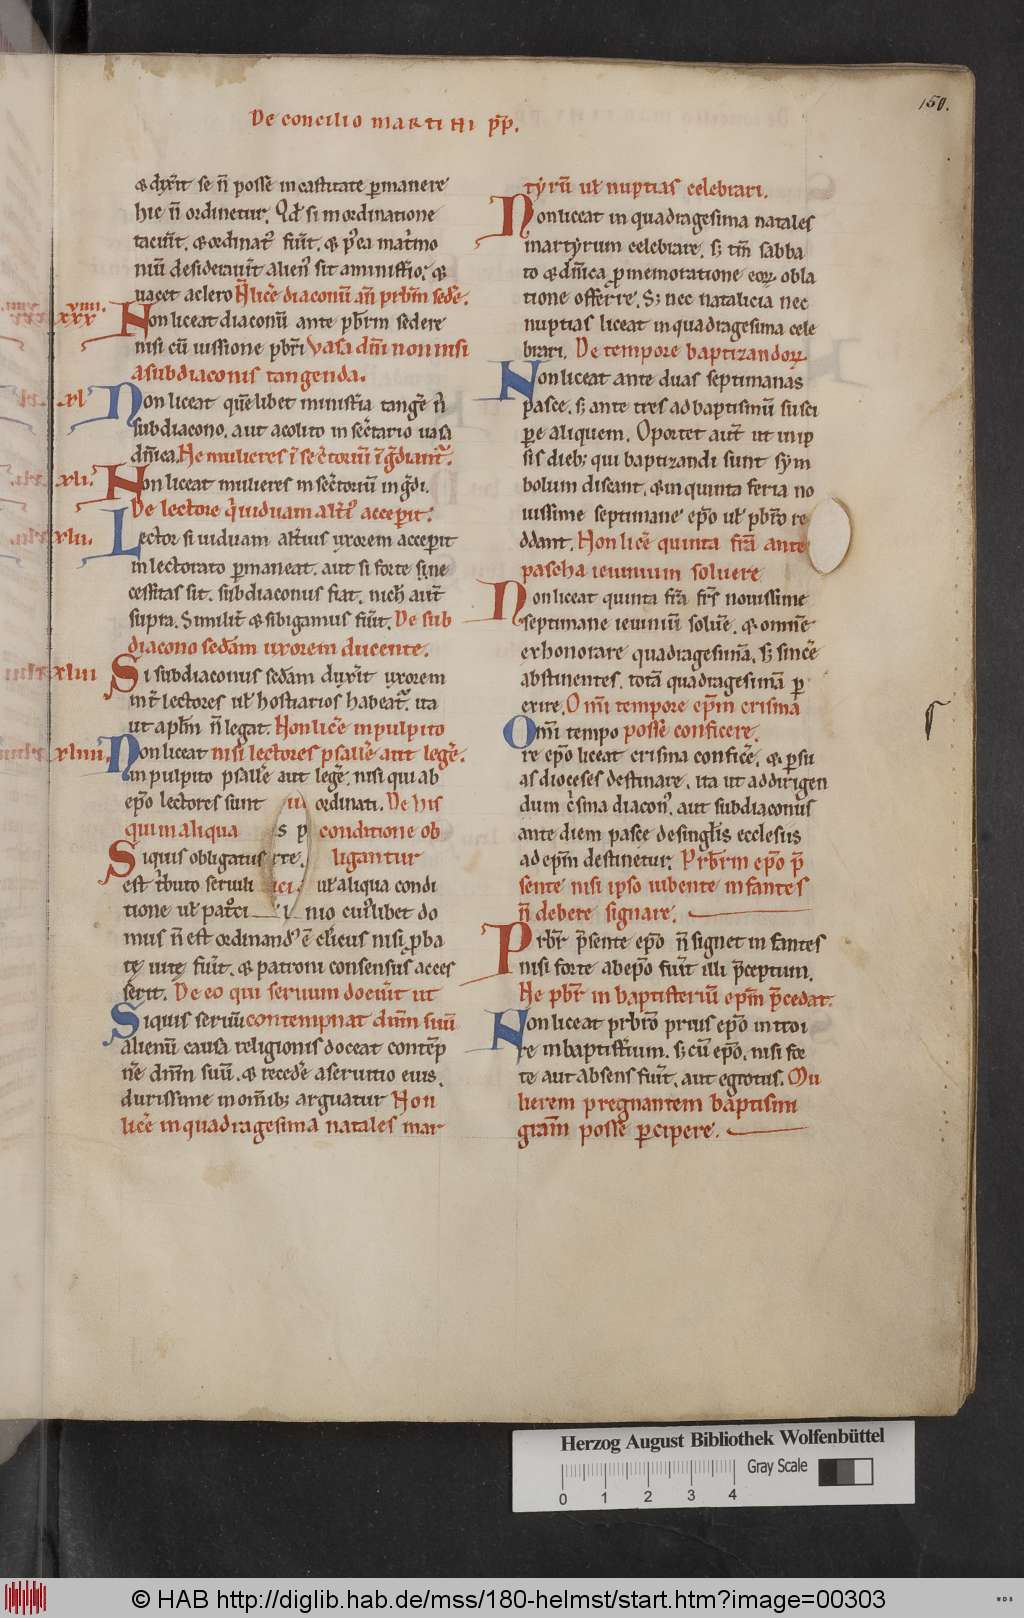 150.
De concilio martini pp̄.
& dix̄it se n̄ posse in castitate p̄manere
hic n̄ ordinetur. Qd̄ si in ordinatione
tacuīt. & ordinat᷒ fuīt. & p̄ ea mat̄mo
niū desiderauīt alien᷒ sit a ministīo. &
uacet a clero N̄ licē diaconū an̄ prb̄m sedē.
xxxviiii.
Non liceat diaconū ante pb̄rm sedere
nisi cū iussione pb̄ri Vasa dn̄i non nisi
a subdiaconis tangenda.
xl
Non liceat quēlibet ministīa tangē n̄
subdiacono. aut acolito in secr̄tario uasa
dn̄ica. Ne mulieres ī secr̄toriū īgr̄diant᷒.
xli.
Non liceat mulieres in secr̄toriū ingr̄di.
De lectore qi uiduam alt̄i᷒ accepit.
xlii.
Lector si uiduam alt̄ius uxorem accepit
in lectorato p̄maneat. aut si forte sine
cessitas sit. subdiaconus fiat. nich̄ aut̄
supra. Similit̄ & si bigamus fuīt. De sub
diacono sedām uxorem ducente.
xliii
Si subdiaconus sedām duxīt uxorem
int̄ lectores ul̄ hostiarios habeat᷒. ita
ut apl̄m n̄ legat. Non licē in pulpito
xliiii
Non liceat nisi lectores psallē aut legē.
in pulpito psallē aut legē. nisi qui ab
ep̄o lectores sunt ordinati. De his
qui in aliqua conditione ob
Siquis obligatus ligantur
est tb̄uto seruili ul̄ aliqua condi
tione ul̄ pat᷒ci nio cui᷒libet do
mus n̄ est ordinand᷒ ē cl̄icus nisi p̄ba
tę uitę fuīt. & patroni consensus acces
serit. De eo qui seruum docuīt ut
Siquis seruū contempnat dn̄m suū
alienū causa religionis doceat contēp
nē dn̄m suū. & recedē a seruitio eius.
durissime in om̄ib; arguatur Non
licē in quadragesima natales mar
tyrū ul̄ nuptias celebrari.
Non liceat in quadragesima natales
martyrum celebrare. s; tm̄ sabba
to & dn̄ica p̄ memoratione eoꝝ obla
tione offerre. S; nec natalicia nec
nuptias liceat in quadragesima cele
brari. De tempore baptizandoꝝ
Non liceat ante duas septimanas
pasce. s; ante tres ad baptismū susci
p̄e aliquem. Oportet aut̄ ut in ip
sis dieb; qui baptizandi sunt sym
bolum discant. & in quinta feria no
uissime septimane ep̄o ul̄ pb̄ro re
ddant. Non licē quinta fr̄a ante
pascha ieiunium soluere
Non liceat quinta fr̄a fr̄s nouissime
septimane ieiuniū soluē. & omnē
exhonorare quadragesimā. s; sincē
abstinentes. totā quadragesimā p̄
exire. Omī tempore ep̄m crisma
Omī tempo posse conficere.
re ep̄o liceat crisma conficē. & p̄ su
as dioceses destinare. ita ut ad dirigen
dum c̄sma diacon᷒. aut subdiaconus
ante diem pasce de singlīs ecclesiis
ad ep̄m destinetur. Prb̄rm ep̄o p̄
sente nisi ipso iubente infantes
n̄ debere signare.
Prb̄r p̄sente ep̄o n̄ signet infantes
nisi forte ab ep̄o fuīt illi p̄ceptum.
Ne pb̄r in baptisteriū ep̄m p̄cedat.
Non liceat prb̄ro prius ep̄o introi
re in baptistīum. s; cū ep̄o. nisi for
te aut absens fuīt. aut egrotus. Mu
lierem pregnantem baptismi
grām posse p̄cipere.
Herzog August Bibliothek Wolfenbüttel
Gray Scale
0 1 2 3 4
© HAB http://diglib.hab.de/mss/180-helmst/start.htm?image=00303